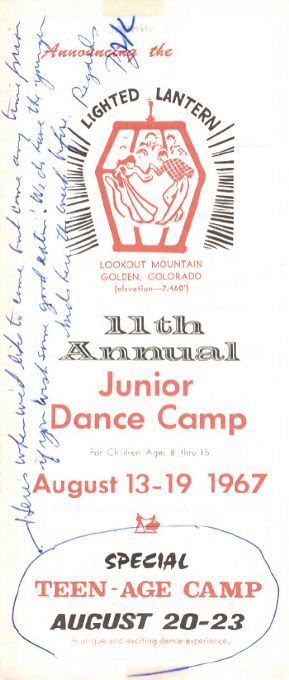 Announcing the
LIGHTED LANTERN
LOOKOUT MOUNTAIN
GOLDEN, COLORADO
(elevation—7,460')
11th
Annual
Junior
Dance Camp
For Children Ages 8 thru 15
August 13-19 1967
SPECIAL
TEEN-AGE CAMP
AUGUST 20-23
A unique and exciting dance experience.
Here's when we'd like to come but come any time
if you want some good eatin'! We do have the younger
week before. Regards